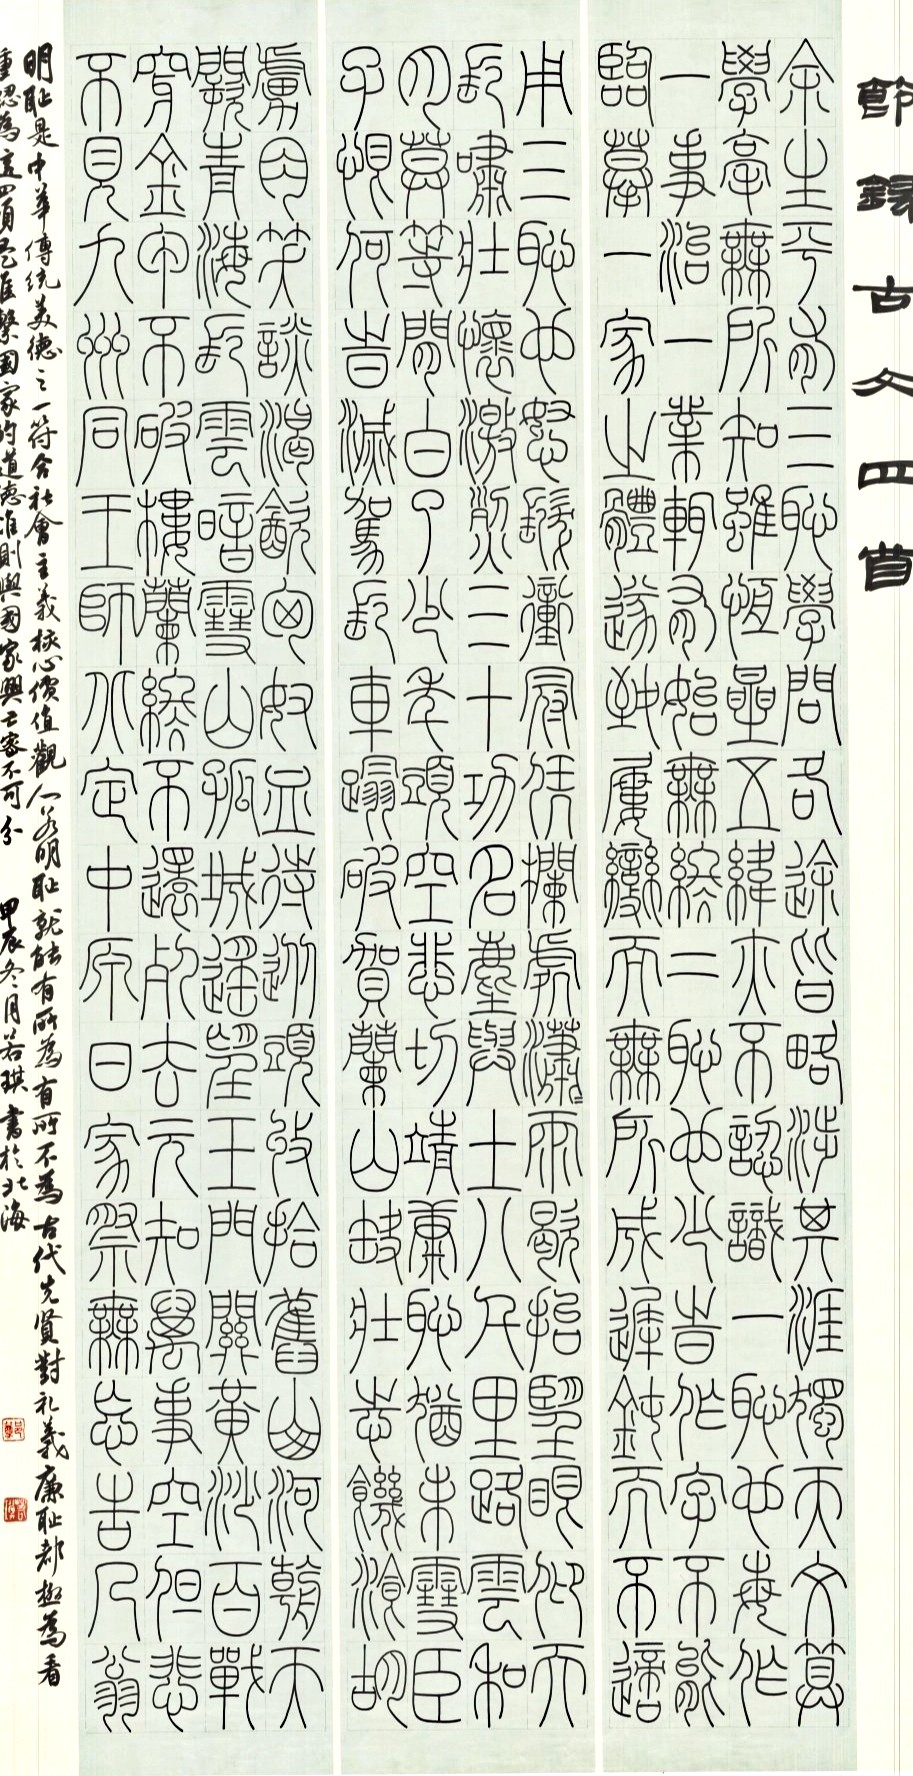 節錄古文四首
余生平有三恥學問各途皆略涉其涯獨天文算
學毫無所知雖恆星五緯亦不認識一恥也每作
一事治一業輒有始無終二恥也少時作字不能
臨摹一家之體遂致屢變而無所成遲鈍而不適
用三恥也怒髮衝冠憑欄處瀟瀟雨歇抬望眼仰天
長嘯壯懷激烈三十功名塵與土八千里路雲和
月莫等閒白了少年頭空悲切靖康恥猶未雪臣
子恨何時滅駕長車踏破賀蘭山缺壯志飢餐胡
虜肉笑談渴飲匈奴血待從頭收拾舊山河朝天
闕青海長雲暗雪山孤城遙望玉門關黃沙百戰
穿金甲不破樓蘭終不還死去元知萬事空但悲
不見九州同王師北定中原日家祭無忘告乃翁
明耻是中華傳統美德之一符合社會主義核心價值觀人若明耻就能有所為有所不為古代先賢對礼義廉耻都極為看
重認為這四項是維繫國家的道德准則與國家興亡密不可分 甲辰冬月若琪書於北海